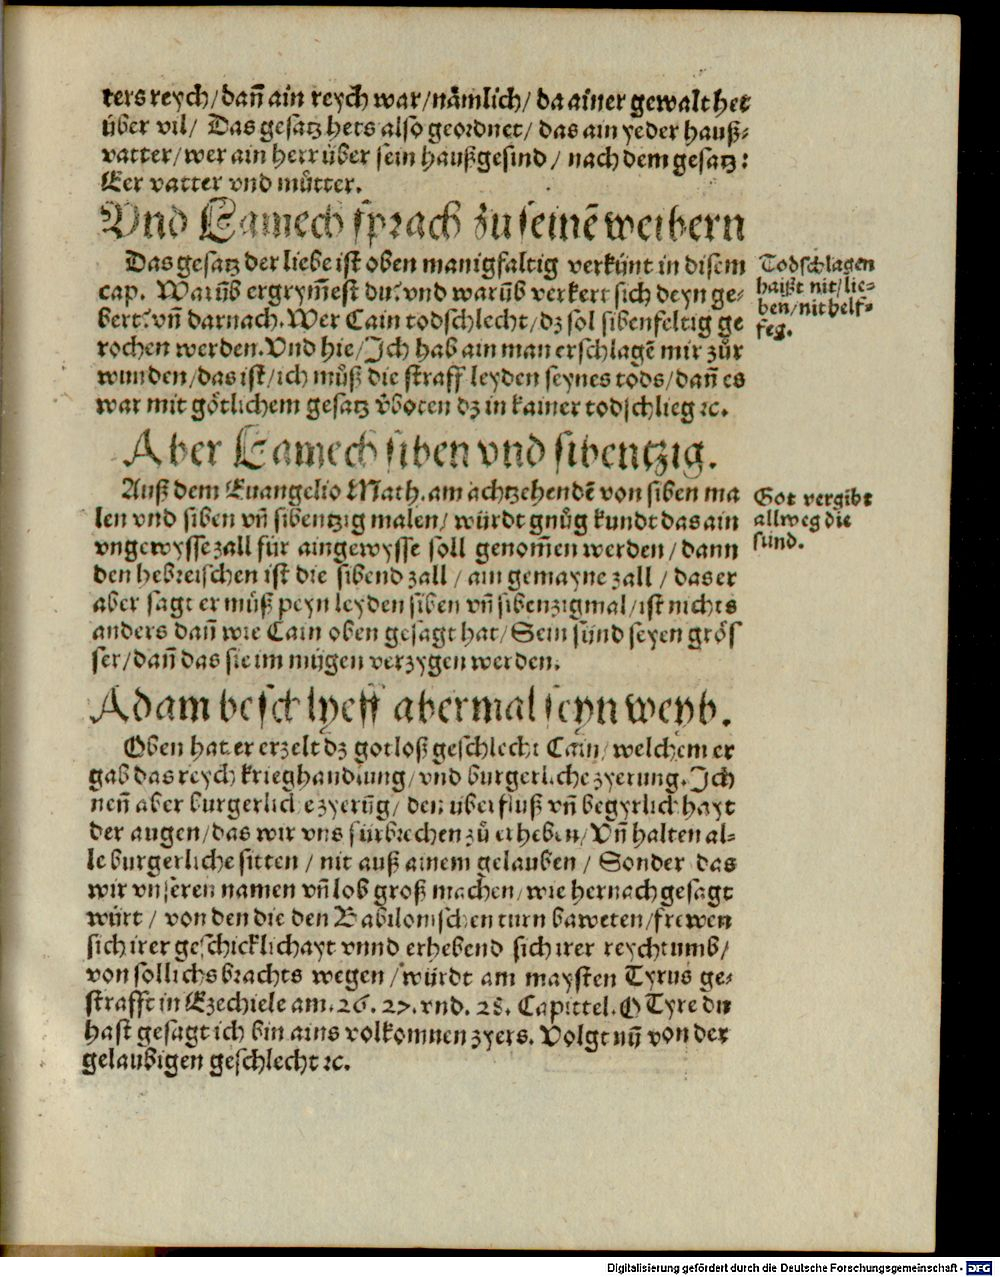 ters reych/dañ ain reych war/nämlich/da ainer gewalt het
über vil/ Das gesatz hets also geordnet/ das ain yeder hauß⸗
vatter/wer ain herr über sein haußgesind/ nach dem gesatz:
Eer vatter vnd můtter.
Vnd Lamech sprach zu seinē weibern
Das gesatz der liebe ist oben manigfaltig verkünt in disem
cap. Warūb ergrym̃est du? vnd warūb verkert sich deyn ge⸗
bert? vñ darnach. Wer Cain todschlecht/dz sol sibenfeltig ge
rochen werden. Vnd hie/Jch hab ain man erschlagē mir zůr
wunden/das ist/ich můß die straff leyden seynes tods/dañ es
war mit götlichem gesatz v̈boten dz in kainer todschlieg ꝛc.
Todschlagen
haißt nit/lie⸗
ben/nit helf⸗
feg.
Aber Lamech siben vnd sibentzig.
Auß dem Euangelio Math. am achtzehendē von siben ma
len vnd siben vñ sibentzig malen/ würdt gnůg kundt das ain
vngewysse zall für ain gewysse soll genom̃en werden/dann
den hebreischen ist die sibend zall/ ain gemayne zall/ das er
aber sagt er můß peyn leyden siben vñ sibenzigmal/ist nichts
anders dañ wie Cain oben gesagt hat/Sein sünd seyen grös
ser/dañ das sie im mügen verzygen werden.
Got vergibt
allweg die
sünd.
Adam beschlyeff abermal seyn weyb.
Oben hat er erzelt dz gotloß geschlecht Cain/welchem er
gab das reych krieghandlung/vnd burgerliche zyerung. Jch
neñ aber burgerliche zyerūg/ den überfluß vñ begyrlichayt
der augen/das wir vns fürbrechen zů erheben/Vñ halten al⸗
le burgerliche sitten/ nit auß ainem gelauben/ Sonder das
wir vnseren namen vñ lob groß machen/wie hernach gesagt
würt/ von den die den Babilonischen turn baweten/frewen
sich irer geschicklichayt vnnd erhebend sich irer reychtumb/
von sollichs brachts wegen/würdt am maysten Tyrus ge⸗
strafft in Ezechiele am. 26. 27. vnd. 28. Capittel. O Tyre du
hast gesagt ich bin ains volkomnen zyers. Volgt nū von der
gelaubigen geschlecht ꝛc.
Digitalisierung gefördert durch die Deutsche Forschungsgemeinschaft - DFG